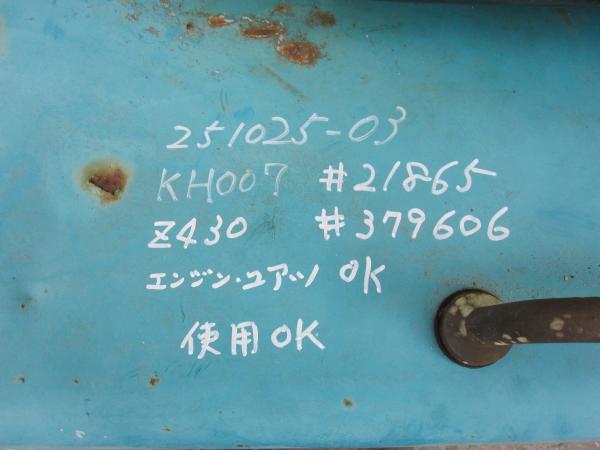 251025-03
KH007 #21865
Z430 #379606
エンジン・ユアツ OK
使用OK